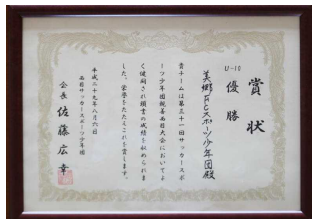 賞状
U-10
優勝
美郷FCスポーツ少年団殿
貴チームは第三十一回サッカースポ
ーツ少年団親善西目大会においてよ
く健闘され頭書の成績を収められま
した。栄誉をたたえこれを賞します。
平成二十九年八月六日
西目サッカースポーツ少年団
会長 佐藤広幸